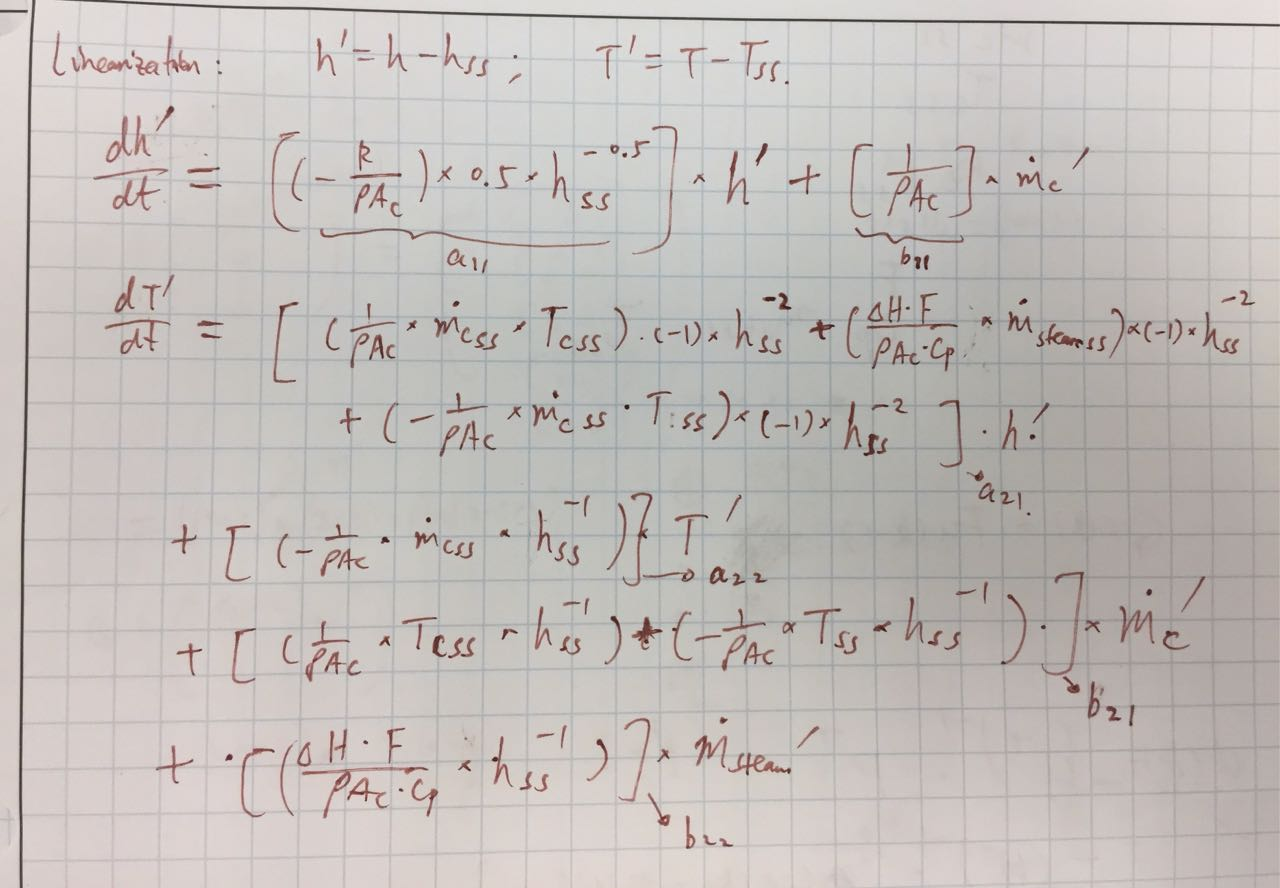 Linearization: h' = h - hss ; T' = T - Tss.
dh'/dt = [(- k/ρAc) × 0.5 × hss^-0.5] · h' + [1/ρAc] · ṁc'
a11 b11
dT'/dt = [(1/ρAc × ṁcss × Tcss) · (-1) × hss^-2 + (ΔH·F/ρAc·Cp × ṁsteamss) × (-1) × hss^-2
+ (- 1/ρAc × ṁcss · Tss) × (-1) × hss^-2] · h'
a21.
+ [(- 1/ρAc · ṁcss × hss^-1)] · T'
→ a22
+ [(1/ρAc × Tcss × hss^-1) + (- 1/ρAc × Tss × hss^-1) ·] × ṁc'
b21
+ · [(ΔH·F/ρAc·Cp × hss^-1)] × ṁsteam'
b22